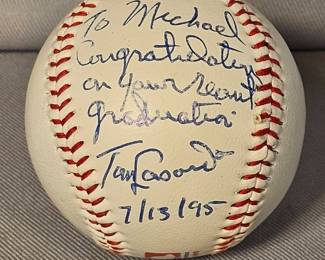 To Michael
Congratulations
on your recent
graduation
Tom Lasorda
7/13/95